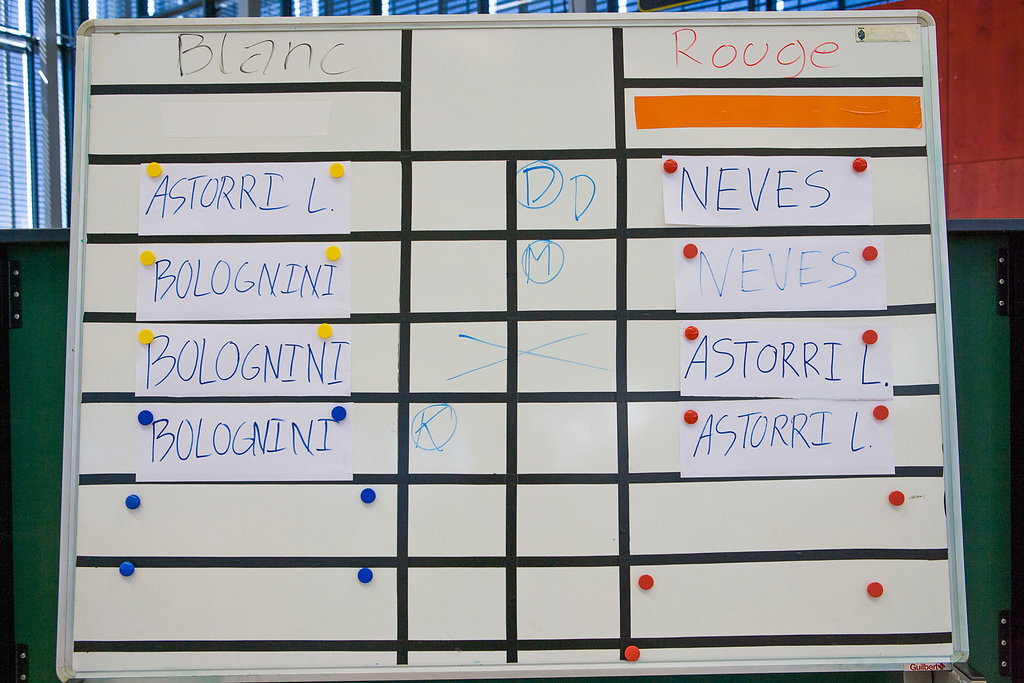 Blanc Rouge
ASTORRI L. D D NEVES
BOLOGNINI M NEVES
BOLOGNINI ASTORRI L.
BOLOGNINI K ASTORRI L.
Guilbert